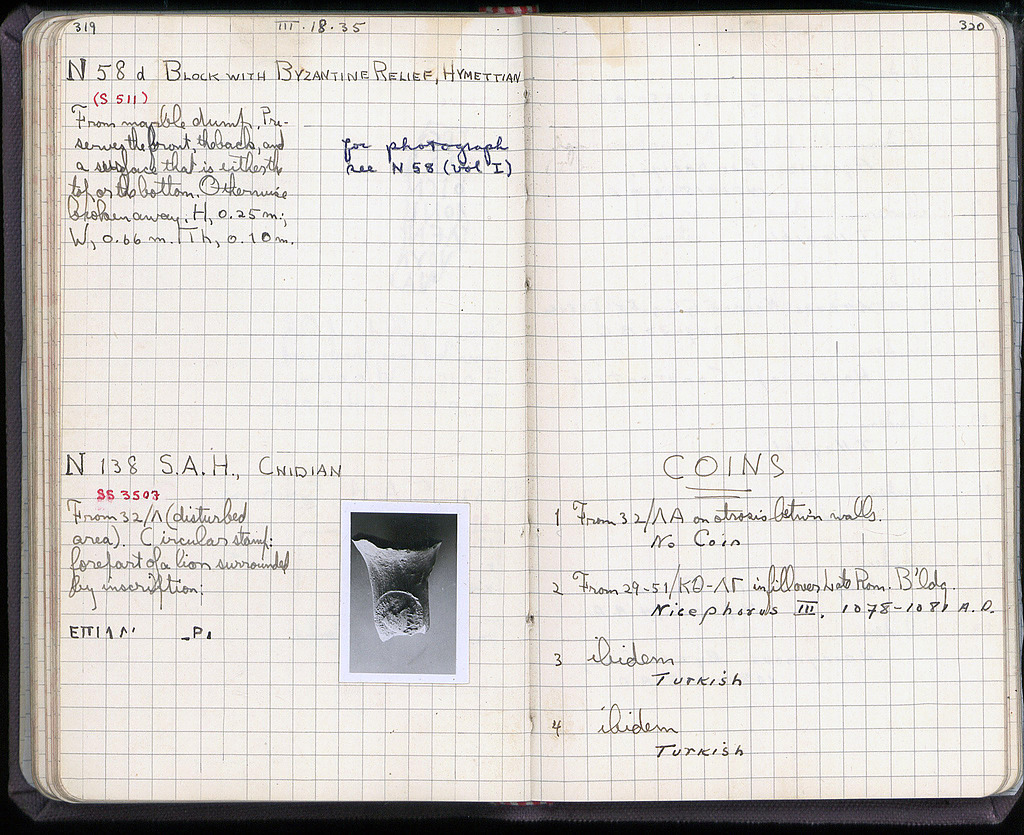 319
III · 18 · 35
N 58 d BLOCK WITH BYZANTINE RELIEF, HYMETTIAN
(S 511)
From marble dump. Pre-
serves the front, the back, and
a surface that is either the
top or the bottom. Otherwise
broken away. H, 0.25 m;
W, 0.66 m. Th, 0.10 m.
for photograph
see N 58 (vol I)
N 138 S.A.H., CNIDIAN
SS 3507
From 32/Λ (disturbed
area). Circular stamp:
forepart of a lion surrounded
by inscription:
ΕΠΙ
320
COINS
1 From 32/ΛΑ on stosis betw'n walls.
No Coin
2 From 29-51/ΚΘ-ΛΓ in fill over Late Rom. B'ldg.
Nicephorus III, 1078-1081 A.D.
3 ibidem
Turkish
4 ibidem
Turkish